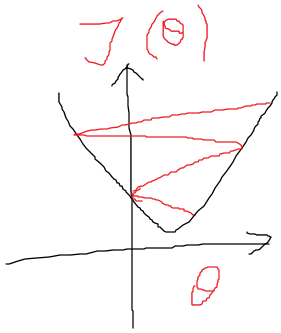 J(Θ)
Θ